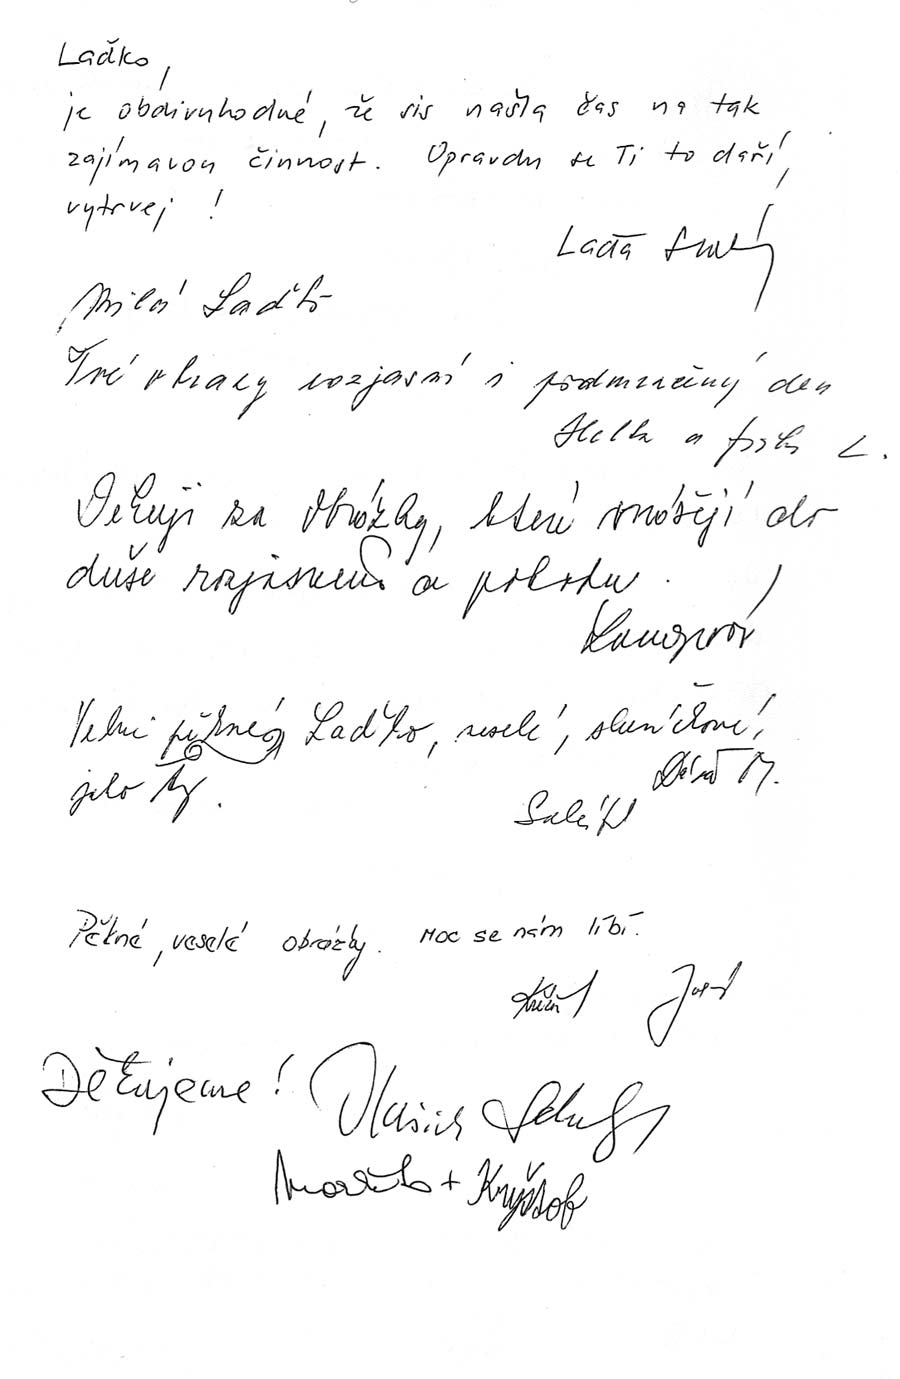 Laďko,
je obdivuhodné, že sis našla čas na tak
zajímavou činnost. Opravdu se Ti to daří,
vytrvej!
Laďa
Milá Laďko
Tvé obrazy rozjasní i podmračený den
a L.
Děkuji za obrázky, které vnášejí do
duše rozjasnění a pohodu.
Velmi pěkné, Laďko, veselé, sluníčkové,
jako Ty.
M.
Pěkné, veselé obrázky. Moc se nám líbí.
Děkujeme!
+ Kryštof